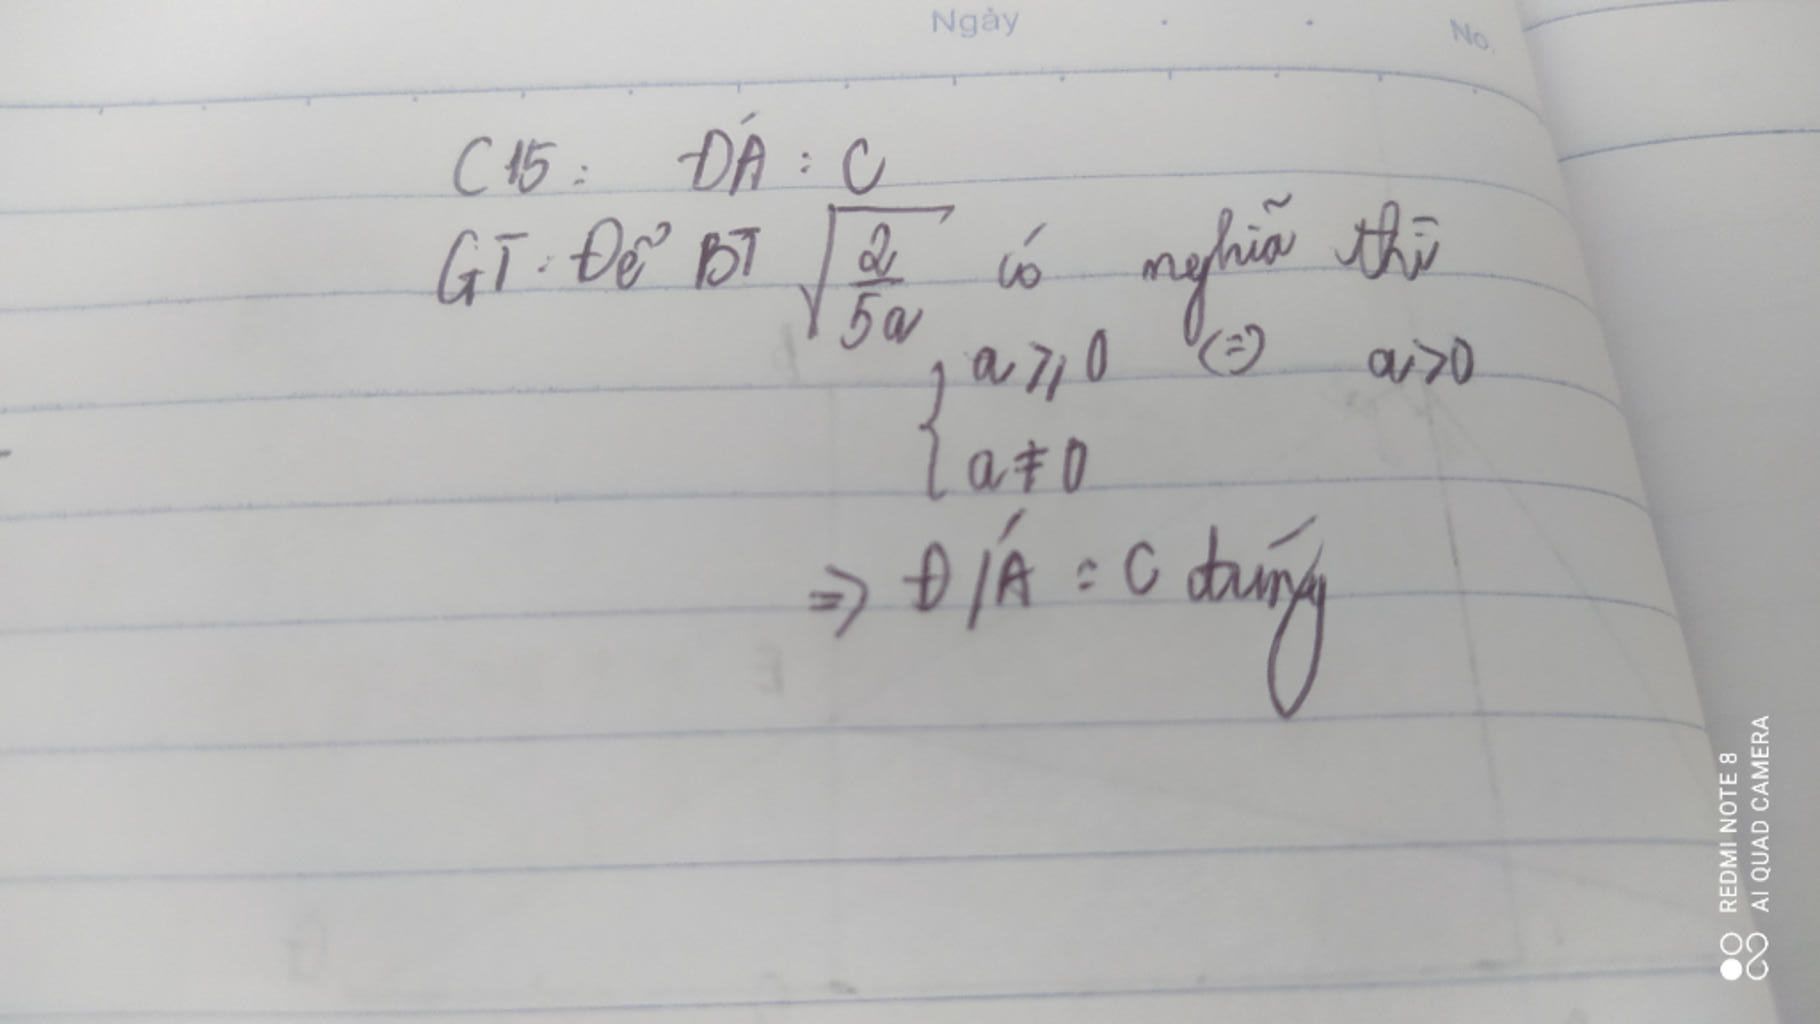 Ngày No.
C15: ĐÁ: C
GT: Để BT √(2/5a) có nghĩa thì
{ a ≥ 0 (=) a>0
a ≠ 0
=> Đ/Á: C đúng
REDMI NOTE 8
AI QUAD CAMERA